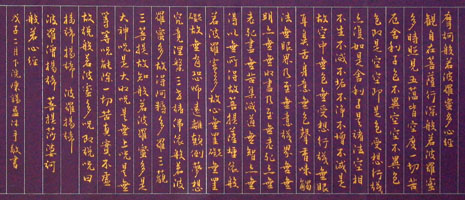 摩訶般若波羅蜜多心經
觀自在菩薩行深般若波羅蜜
多時照見五蘊皆空度一切苦
厄舍利子色不異空空不異色
色即是空空即是色受想行識
亦復如是舍利子是諸法空相
不生不滅不垢不淨不增不減是
故空中無色無受想行識無眼
耳鼻舌身意無色聲香味觸
法無眼界乃至無意識界無無
明亦無無明盡乃至無老死亦無
老死盡無苦集滅道無智亦無
得以無所得故菩提薩埵依般
若波羅蜜多故心無罣礙無罣
礙故無有恐怖遠離顛倒夢想
究竟涅槃三世諸佛依般若波
羅蜜多故得阿耨多羅三藐
三菩提故知般若波羅蜜多是
大神咒是大明咒是無上咒是無
等等咒能除一切苦真實不虛
故說般若波羅蜜多咒即說咒曰
揭諦揭諦 波羅揭諦
波羅僧揭諦 菩提薩婆訶
般若心經
戊子 月下浣 敬書